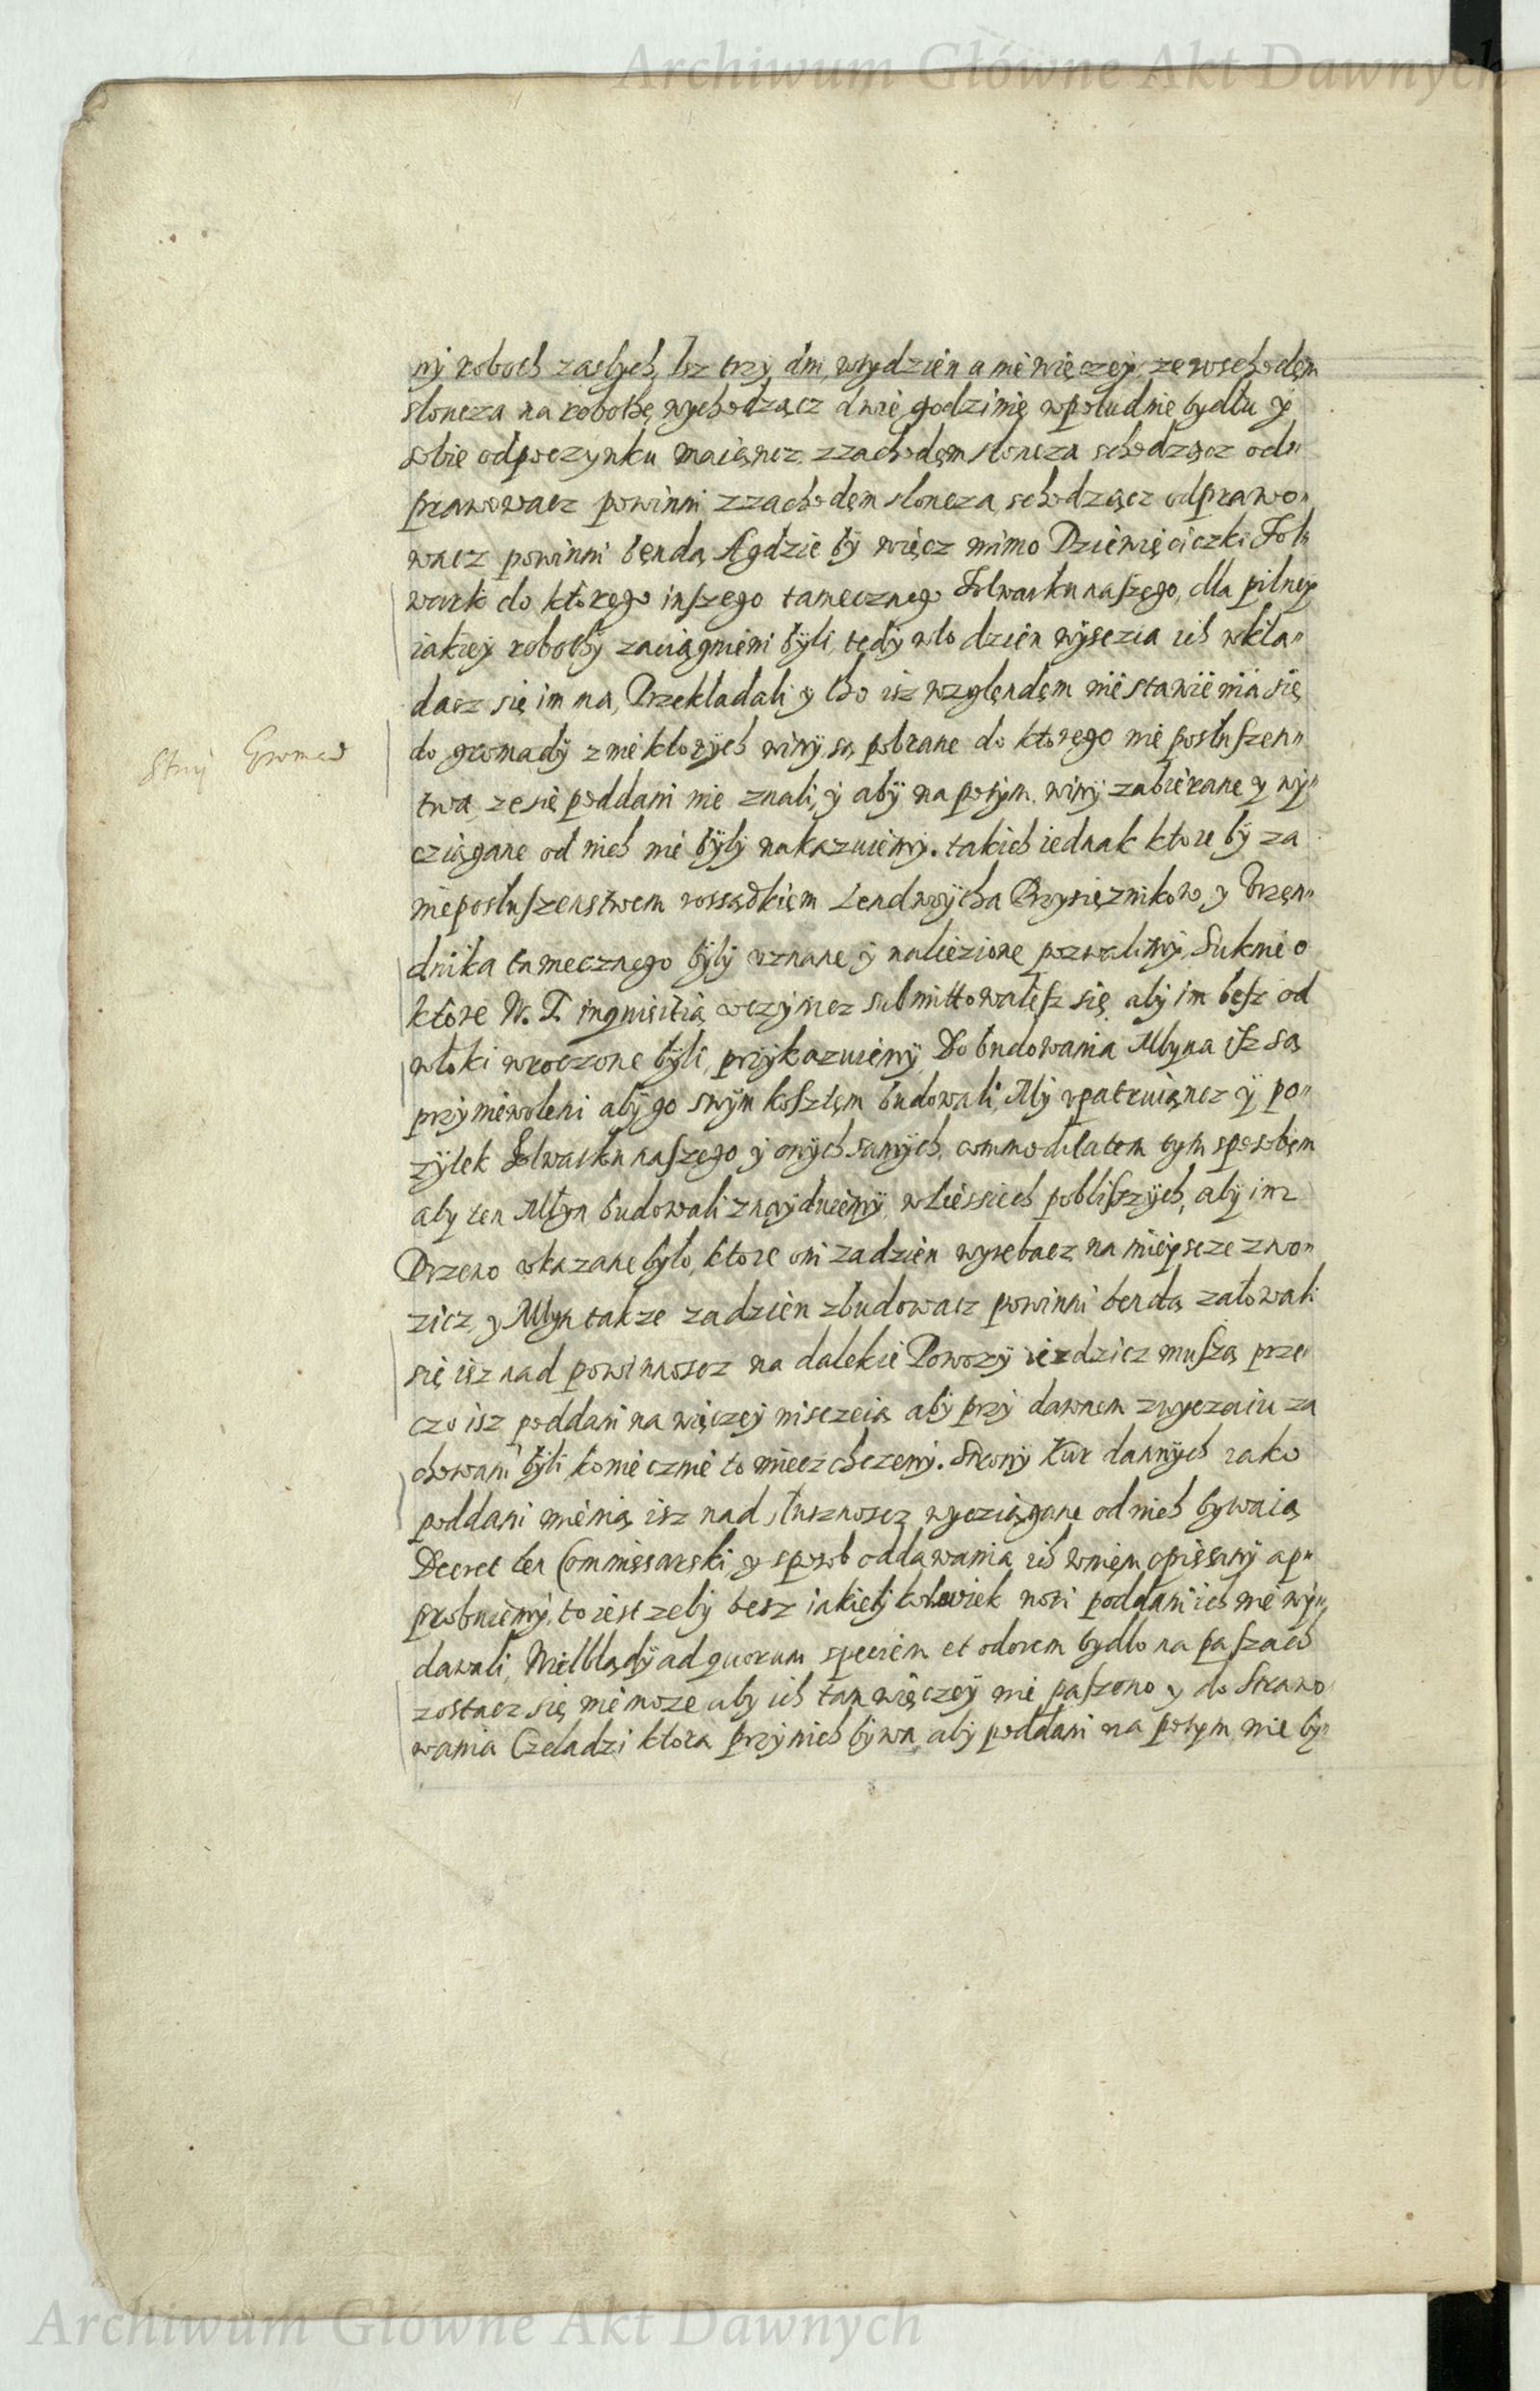 Archiwum Główne Akt Dawnych
ny roboth zaclych, Isz trzy dni wtydzien a nie więczey, ze wschodem
słoncza na robothę wychodzącz dwie godzinie wpołudnie bydłu y
sobie odpoczynku maiąncz zzachodęm słoncza schodząncz od„
prawowacz powinni zzachodęm słoncza schodząncz odprawo„
wacz powinni będą. A gdzie by więcz mimo Dziewięciczki Fol„
wark do ktorego inszego tamecznego Folwarku naszego, dla pilney
iakiey robothy zaciągnieni byli, tedy wto dzien wysczia ich wkła„
dacz się im ma, Przekladali y tho isz względem nie stawienia się
do gromady z niektorych winy są pobrane do ktorego nie posłuszen„
twa, ze się poddani nie znali, y aby na potym winy zabierane y wy„
cziągane od nich nie były nakazuiemy. takich iednak ktore by za
nieposłuszenstwem rossądkiem Lendwycha Przysięznikow, y Vrzęn„
dnika tamecznego były vznane y nalezione pozwalamy. Suknie o
ktore W. T. inquisitią vczyncz submittowałesz się aby im besz od
włoki wroczone byli, przykazuiemy. Do budowania Młyna isz są
przyniewoleni aby go swym kosztęm budowali, My vpatruiąncz y po„
zytek Folwarku naszego y onych samych, commoditatem tym sposobęm
aby ten Młyn budowali znayduiemy, wliessiech pobliszych, aby im
Drzewo vkazane było, ktore oni za dzien wyrebacz na mieyscze zwo„
zicz, y Młyn takze zadzien zbudowacz powinni będą załowali
się isz nad powinnoscz na dalekie Powozy iezdzicz muszą prze„
czo isz poddani na więczey nisczeią aby przy dawnem zwyczaiu za
chowani byli koniecznie to miecz chczemy. Strony Kur dannych iako
poddani mienią isz nad słusznoscz wycziągane od nich bywaią
Decret ten Commissarski y sposob oddawania ich wniem opissany ap„
probuiemy, to iest zeby besz iakieykolwiek nowi poddani ich nie wy„
dawali, Wielblądy ad quorum speciem et odorem bydło na paszach
zostacz się nie moze aby ich tam więczey nie paszono y do Strawo
wania Czeladzi ktora przy nich bywa aby poddani na potym nie by„
Stuy Gromad
Archiwum Główne Akt Dawnych